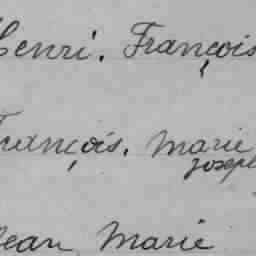 Henri. François
François. Marie
Joseph
Jean Marie